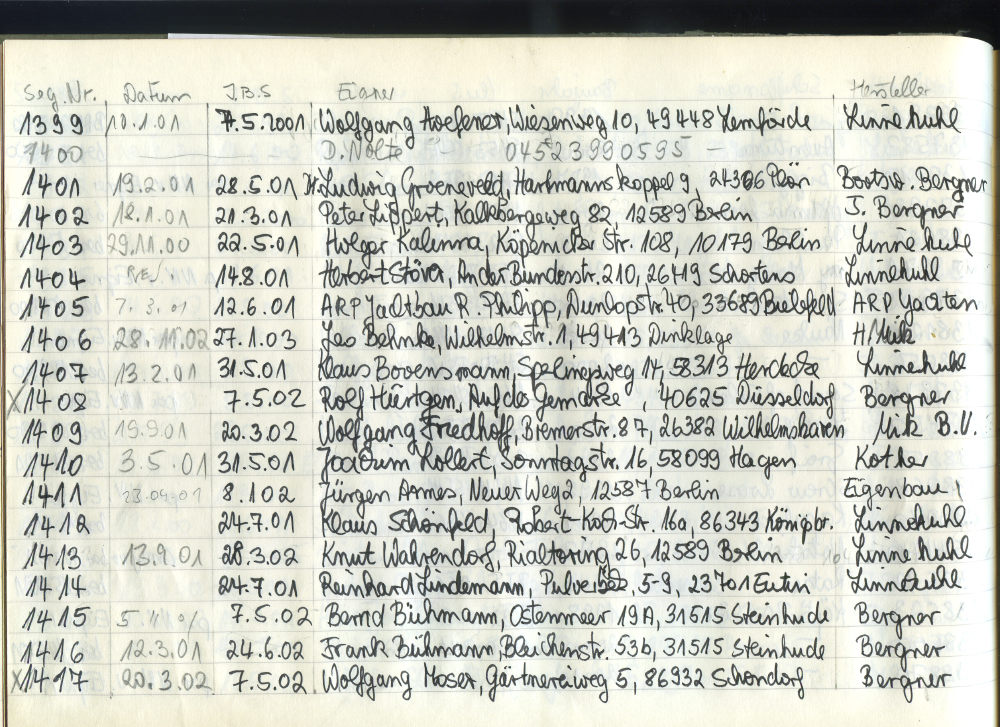 Seg.Nr. Datum J.B.S Eigner Hersteller
1399 10.1.01 7.5.2001 Wolfgang Hoefener, Wiesenweg 10, 49448 Lemförde Linnekuhl
1400 D. Nolte 04523990595
1401 19.2.01 28.5.01 Ludwig Groeneveld, Hartmannskoppel 9, 24306 Plön Bootsw. Bergner
1402 12.1.01 21.3.01 Peter Lippert, Kalkbergeweg 82 12589 Berlin J. Bergner
1403 29.11.00 22.5.01 Holger Kalinna, Köpenicker Str. 108, 10179 Berlin Linnekuhl
1404 14.8.01 Herbert Stöver, An der Bundesstr. 210, 26419 Schortens Linnekuhl
1405 7.3.01 12.6.01 ARP Jachtbau R. Philipp, Dunlopstr. 40, 33689 Bielefeld ARP Jachten
1406 28.11.02 27.1.03 Leo Behnke, Wilhelmstr. 1, 49413 Dinklage H. Mik
1407 13.2.01 31.5.01 Klaus Bovensmann, 14, 58313 Herdecke Linnekuhl
X 1408 7.5.02 Rolf Hürtgen, Auf der Gemarke , 40625 Düsseldorf Bergner
1409 19.9.01 20.3.02 Wolfgang Friedhoff, Bremerstr. 87, 26382 Wilhelmshaven Mik B.V.
1410 3.5.01 31.5.01 Joachim Kollert, Sonntagstr. 16, 58099 Hagen Kothar
1411 23.04.01 8.1.02 Jürgen Armes, Neuer Weg 2, 12587 Berlin Eigenbau
1412 24.7.01 Klaus Schönfeld, Robert-Koch-Str. 16a, 86343 Königsbr. Linnekuhl
1413 13.9.01 28.3.02 Knut Wahrendorf, Rialtoring 26, 12589 Berlin Linnekuhl
1414 24.7.01 Reinhard Lindemann, 5-9, 23701 Eutin Linnekuhl
1415 7.5.02 Bernd Bühmann, Ostenmeer 19A, 31515 Steinhude Bergner
1416 12.3.01 24.6.02 Frank Bühmann, Bleichenstr. 53b, 31515 Steinhude Bergner
X 1417 20.3.02 7.5.02 Wolfgang Moser, Gärtnereiweg 5, 86932 Schondorf Bergner